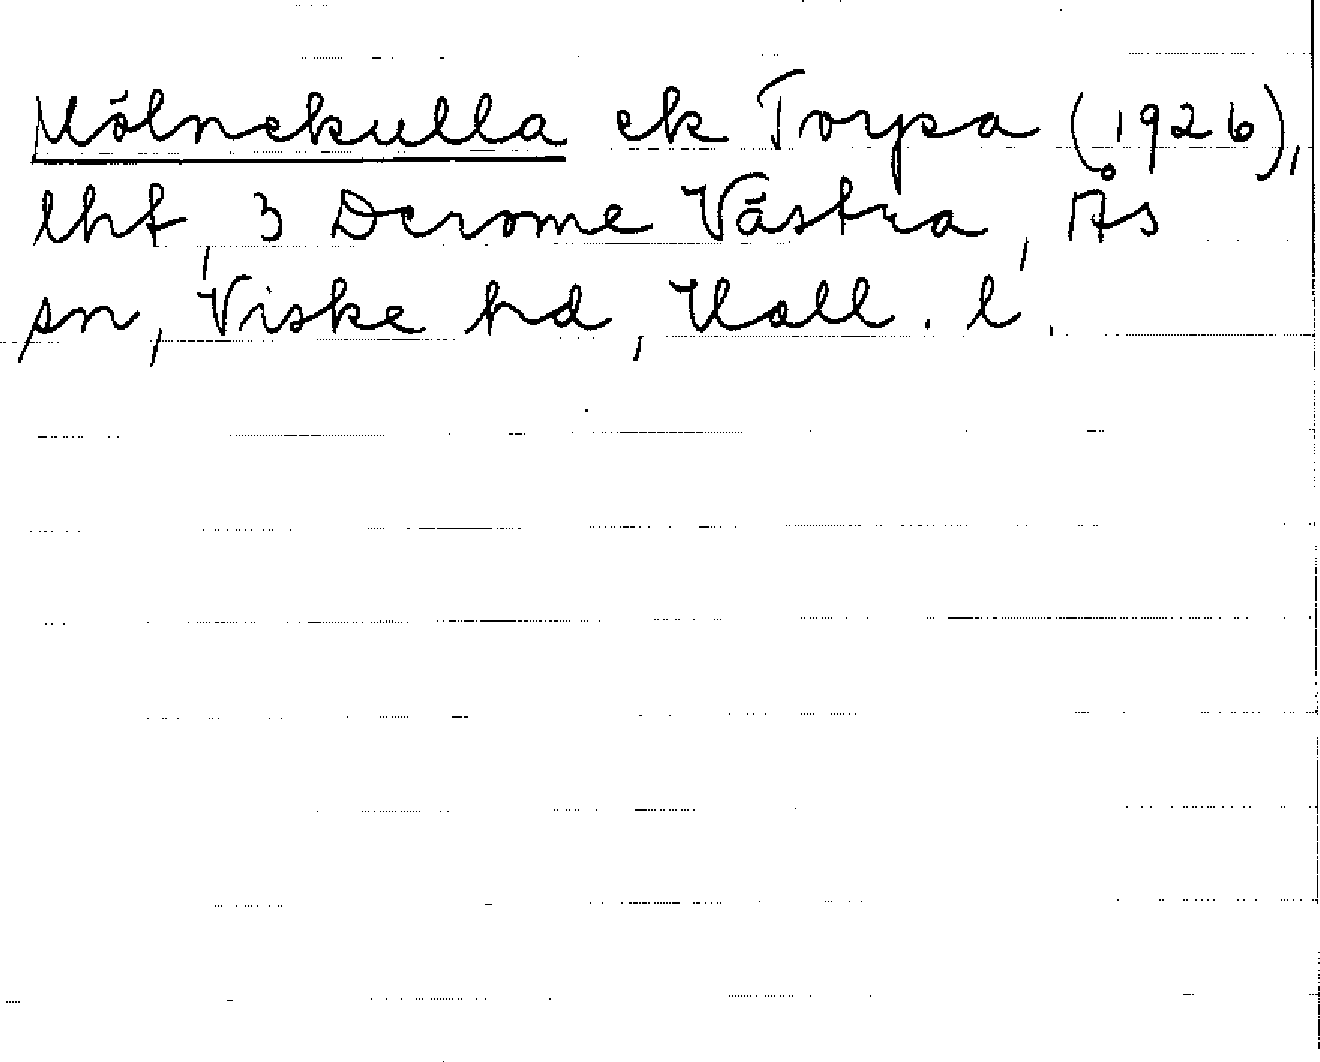 Mölnekulla ek Torpa (1926),
lht, 3 Derome Västra, Ås
sn, Viske hd, Hall. l.